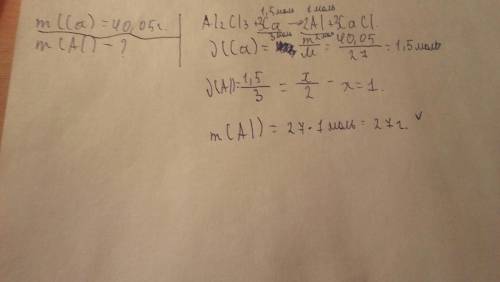 m(Ca) = 40,05г.
m(Al) - ?
1,5моль 1 моль
Al₂Cl₃ + 3Ca → 2Al + 3CaCl.
3моль 2моль
ν(Ca) = m/M = 40,05/27 = 1,5 моль
ν(Al) = 1,5/3 = x/2 - x = 1.
m(Al) = 27 · 1 моль = 27 г.